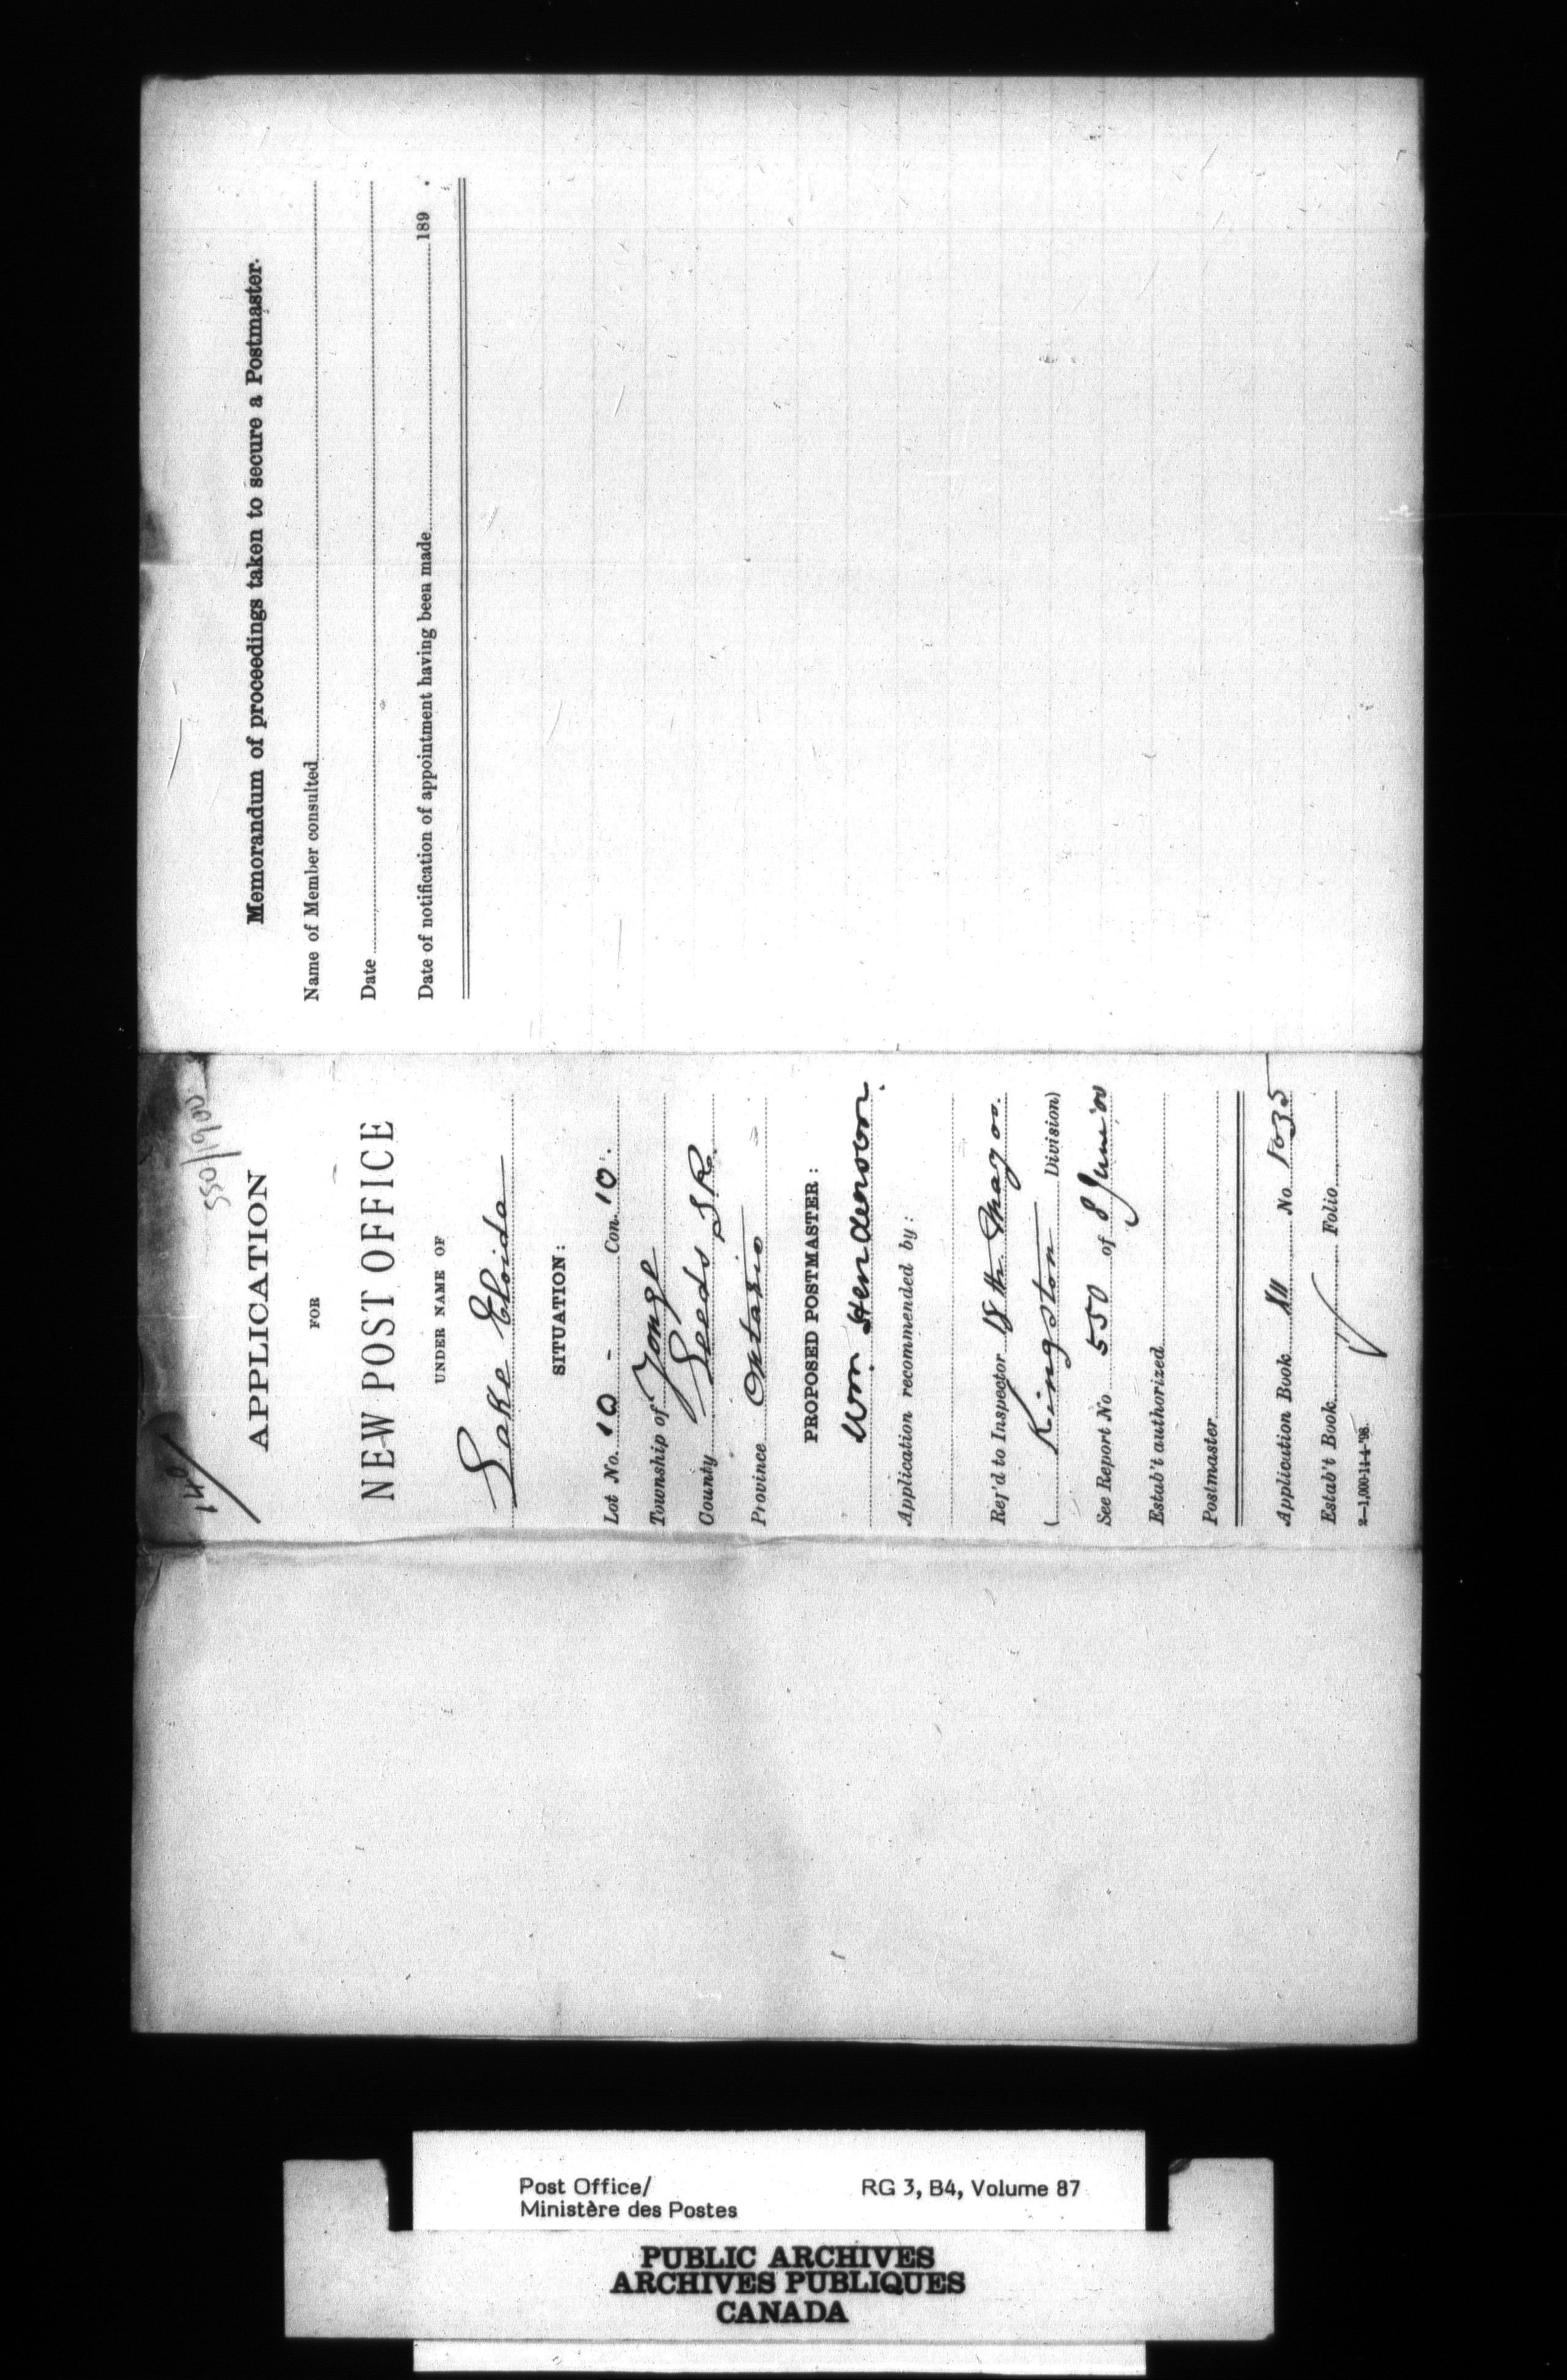 140
550/1900
APPLICATION
FOR
NEW POST OFFICE
UNDER NAME OF
Lake Eloida
SITUATION:
Lot No. 10 - Con. 10.
Township of Yonge
County Leeds S.R.
Province Ontario
PROPOSED POSTMASTER:
Wm. Henderson.
Application recommended by:
Ref'd to Inspector 18th May 00.
(Kingston Division)
See Report No 550 of 8 June '00
Estab't authorized
Postmaster
Application Book XII No 1035
Estab't Book Folio
2—1,000-14-4-'98.
Memorandum of proceedings taken to secure a Postmaster.
Name of Member consulted
Date
Date of notification of appointment having been made 189 .
Post Office/ RG 3, B4, Volume 87
Ministère des Postes
PUBLIC ARCHIVES
ARCHIVES PUBLIQUES
CANADA